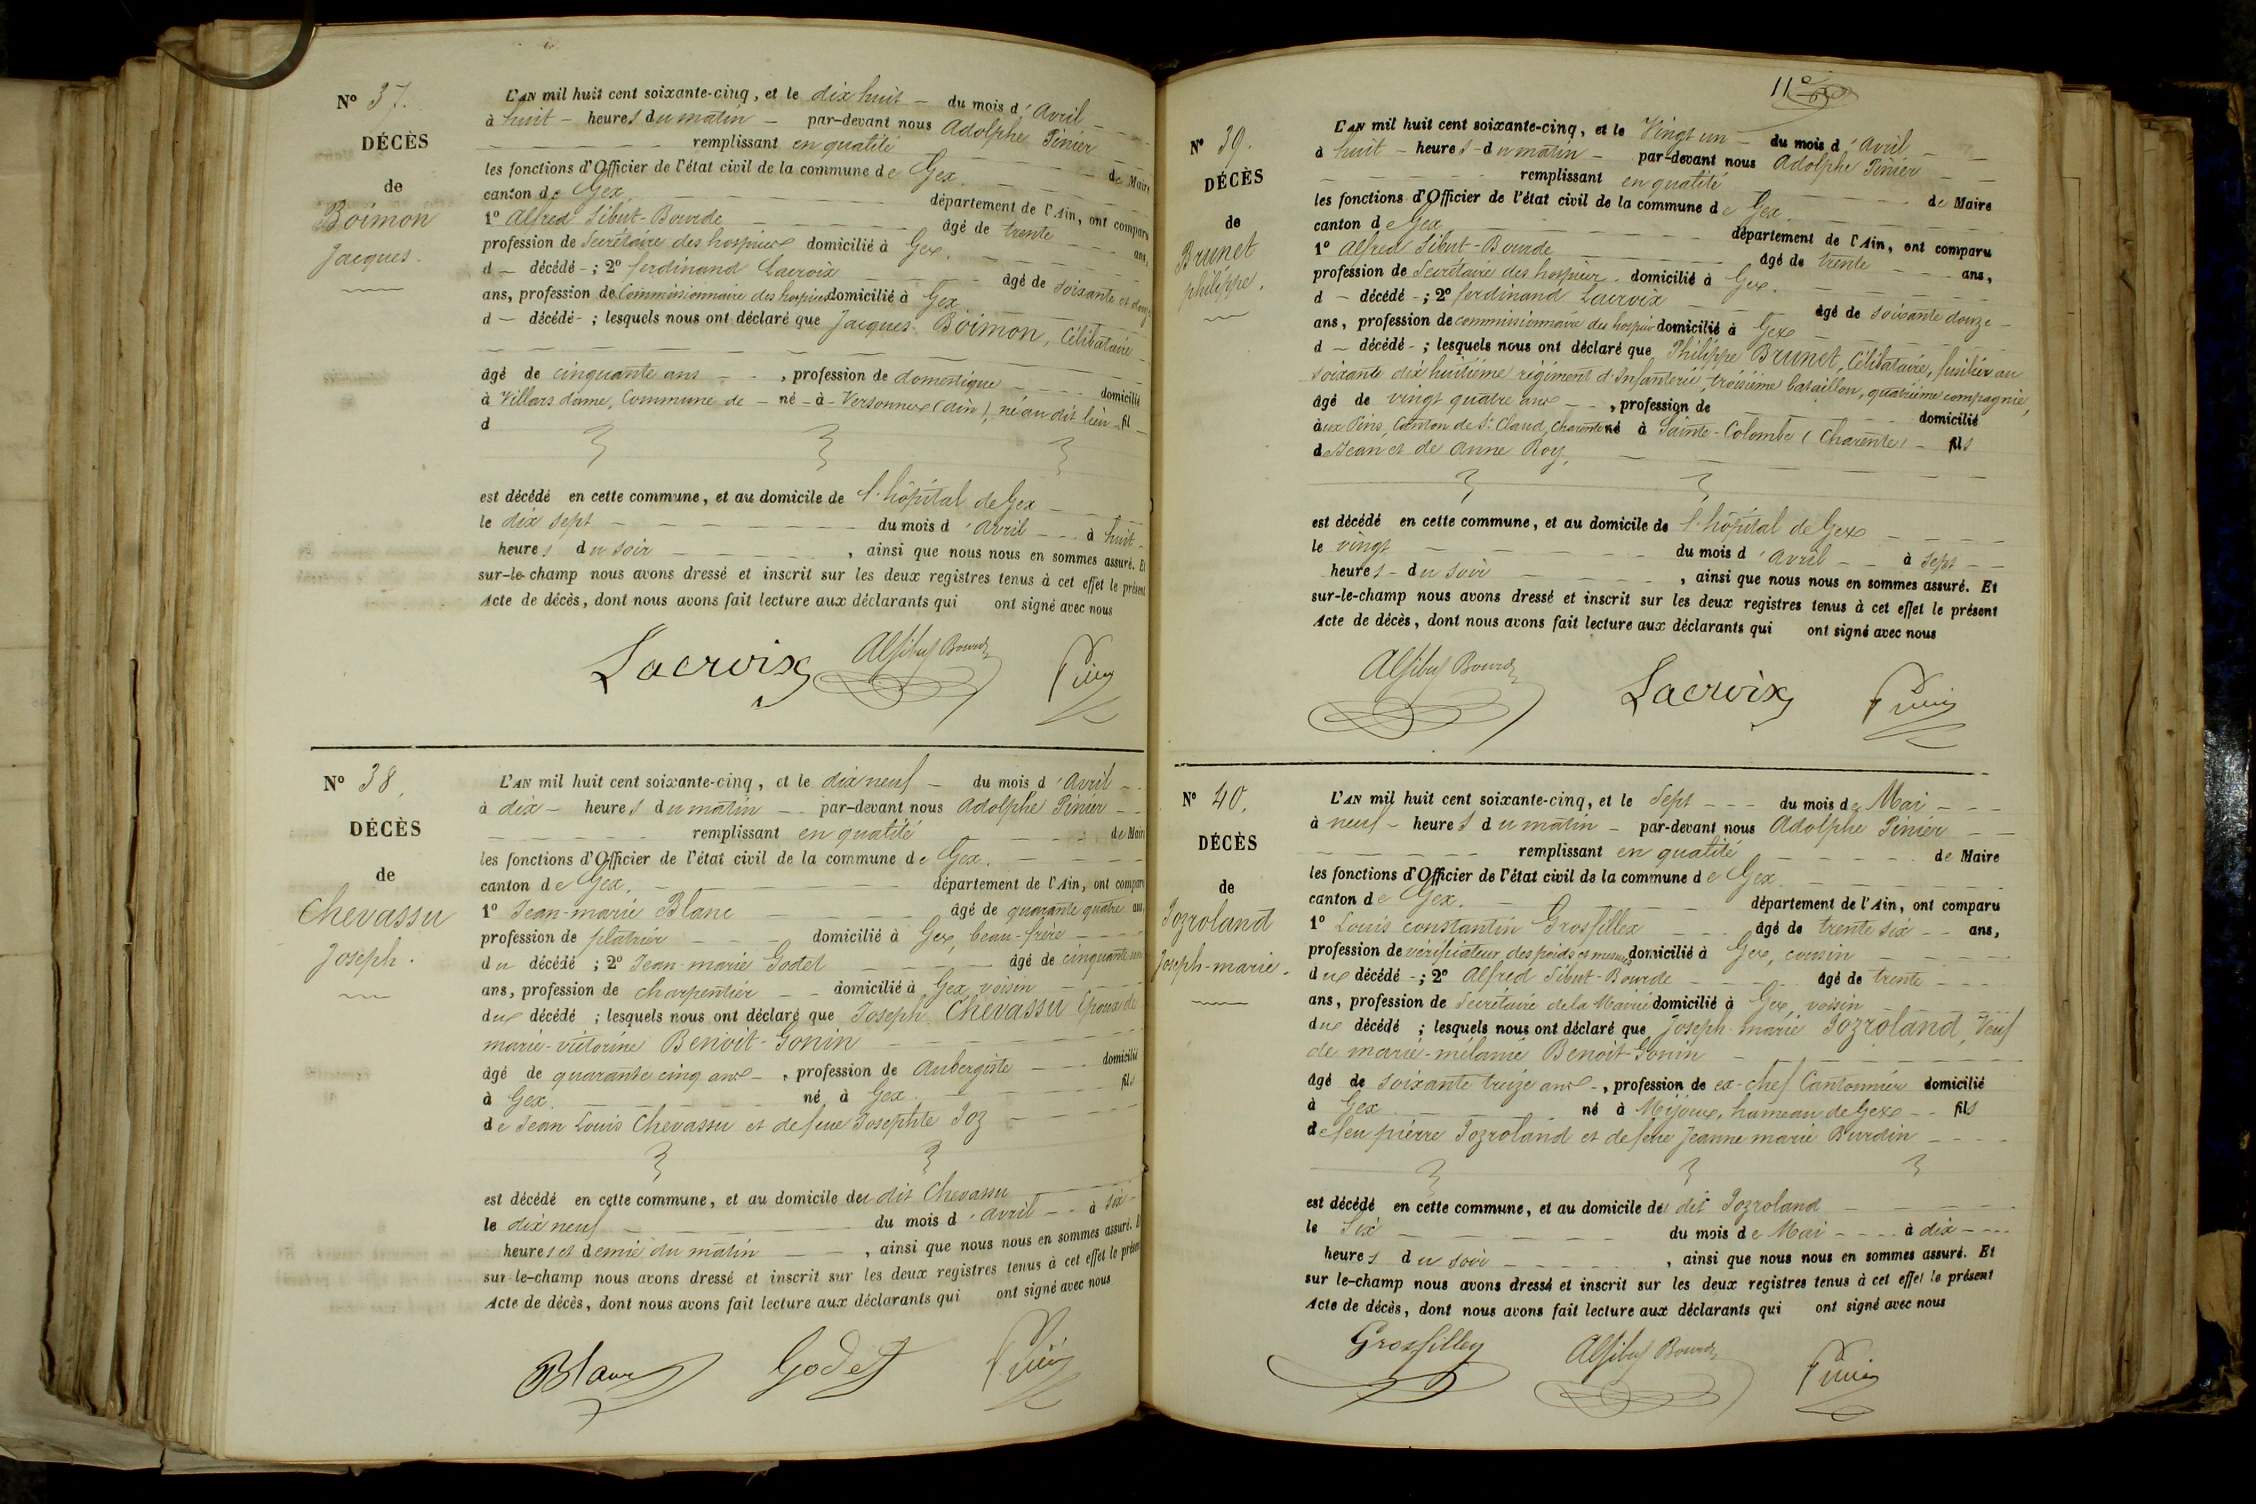 N° 37.
DÉCÈS
de
Boimon
Jacques.
L'AN mil huit cent soixante-cinq, et le dix huit – du mois d'Avril – –
à huit – heures du matin – par-devant nous Adolphe Pinier
remplissant en qualité de Maire
les fonctions d'Officier de l'état civil de la commune de Gex.
canton de Gex. département de l'Ain, ont comparu
1° Alfred Sibut-Bourde âgé de trente ans,
profession de Secrétaire des hospices domicilié à Gex.
d – décédé – ; 2° ferdinand Lacroix âgé de soixante et douze
ans, profession de Commissionnaire des hospices domicilié à Gex
d – décédé – ; lesquels nous ont déclaré que Jacques Boimon, Célibataire
âgé de cinquante ans – – , profession de domestique – – – domicilié
à Villars dame, Commune de – né – à – Versonnex (ain), né au dit lieu – fil
d
est décédé en cette commune, et au domicile de l'hôpital de Gex
le dix sept du mois d'avril – – à huit –
heures du soir , ainsi que nous nous en sommes assuré. Et
sur-le-champ nous avons dressé et inscrit sur les deux registres tenus à cet effet le présent
Acte de décès, dont nous avons fait lecture aux déclarants qui ont signé avec nous
Lacroix Al Sibut Bourde Pinier
N° 38.
DÉCÈS
de
Chevassu
Joseph.
L'AN mil huit cent soixante-cinq, et le dix neuf – du mois d'Avril – –
à dix – heures du matin – – par-devant nous Adolphe Pinier – –
remplissant en qualité de Maire
les fonctions d'Officier de l'état civil de la commune de Gex.
canton de Gex. département de l'Ain, ont comparu
1° Jean-marie Blanc âgé de quarante quatre ans,
profession de platrier domicilié à Gex, beau-frère
du décédé ; 2° Jean-marie Godet âgé de cinquante
ans, profession de charpentier – – domicilié à Gex, voisin
dux décédé ; lesquels nous ont déclaré que Joseph Chevassu Epoux de
marie-victorine Benoit-Gonin
âgé de quarante cinq ans – , profession de Aubergiste domicilié
à Gex. né à Gex. fils
de Jean Louis Chevassu et de feue Josephte Joz
est décédé en cette commune, et au domicile du dit Chevassu
le dix neuf du mois d'avril – – à six –
heures et demie du matin , ainsi que nous nous en sommes assuré. Et
sur-le-champ nous avons dressé et inscrit sur les deux registres tenus à cet effet le présent
Acte de décès, dont nous avons fait lecture aux déclarants qui ont signé avec nous
Blanc Godet Pinier
N° 39.
DÉCÈS
de
Brunet
philippe.
L'AN mil huit cent soixante-cinq, et le Vingt un – du mois d'Avril
à huit – heures – du matin – par-devant nous Adolphe Pinier
remplissant en qualité de Maire
les fonctions d'Officier de l'état civil de la commune de Gex.
canton de Gex département de l'Ain, ont comparu
1° Alfred Sibut-Bourde âgé de trente ans,
profession de Secrétaire des hospices. domicilié à Gex.
d – décédé – ; 2° ferdinand Lacroix âgé de soixante douze –
ans, profession de commissionnaire des hospices domicilié à Gex
d – décédé – ; lesquels nous ont déclaré que Philippe Brunet, Célibataire, fusilier au
soixante dix huitième régiment d'Infanterie, troisième bataillon, quatrième compagnie,
âgé de vingt quatre ans – – , profession de domicilié
à aux Pins, Canton de St Claud, Charente né à Sainte-Colombe (Charente) – fils
de Jean et de Anne Roy,
est décédé en cette commune, et au domicile de l'hôpital de Gex
le vingt du mois d'avril – – à sept – –
heures – du soir , ainsi que nous nous en sommes assuré. Et
sur-le-champ nous avons dressé et inscrit sur les deux registres tenus à cet effet le présent
Acte de décès, dont nous avons fait lecture aux déclarants qui ont signé avec nous
Al Sibut Bourde Lacroix Pinier
N° 40.
DÉCÈS
de
Jozroland
Joseph-marie.
L'AN mil huit cent soixante-cinq, et le Sept – – – du mois de Mai – – –
à neuf – heures du matin – par-devant nous Adolphe Pinier – –
remplissant en qualité de Maire
les fonctions d'Officier de l'état civil de la commune de Gex
canton de Gex. département de l'Ain, ont comparu
1° Louis constantin Grosfillex âgé de trente six – – ans,
profession de vérificateur des poids et mesures domicilié à Gex, cousin
dux décédé – ; 2° Alfred Sibut-Bourde âgé de trente – – –
ans, profession de Secrétaire de la Mairie domicilié à Gex, voisin
dux décédé ; lesquels nous ont déclaré que Joseph-marie Jozroland, Veuf
de marie-mélanie Benoit-Gonin
âgé de soixante treize ans – , profession de ex-chef Cantonnier domicilié
à Gex né à Mijoux, hameau de Gex – – fils
de feu pierre Jozroland et de feue Jeanne marie Burdin
est décédé en cette commune, et au domicile du dit Jozroland
le Six du mois de Mai – – – – à dix – – – –
heures du soir , ainsi que nous nous en sommes assuré. Et
sur le-champ nous avons dressé et inscrit sur les deux registres tenus à cet effet le présent
Acte de décès, dont nous avons fait lecture aux déclarants qui ont signé avec nous
Grosfillex Al Sibut Bourde Pinier